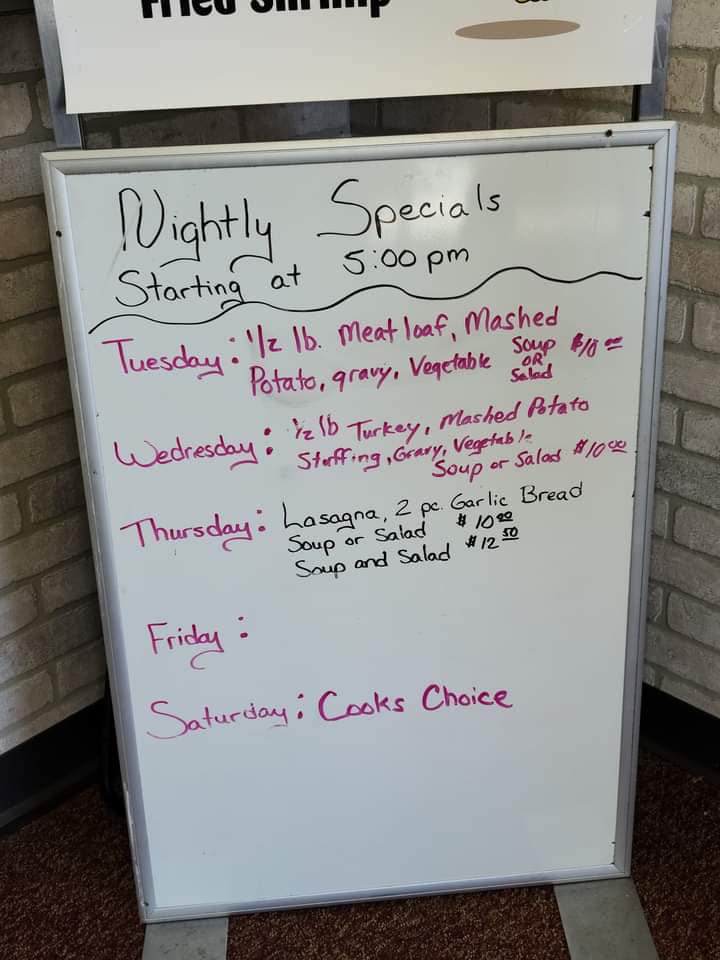 Fried Shrimp
Nightly Specials
Starting at 5:00 pm
Tuesday: 1/2 lb. Meatloaf, Mashed
Potato, gravy, Vegetable Soup OR Salad $10.00
Wednesday: 1/2 lb Turkey, Mashed Potato
Stuffing, Gravy, Vegetable
Soup or Salad $10.00
Thursday: Lasagna, 2 pc. Garlic Bread
Soup or Salad $10.00
Soup and Salad $12.50
Friday:
Saturday: Cooks Choice